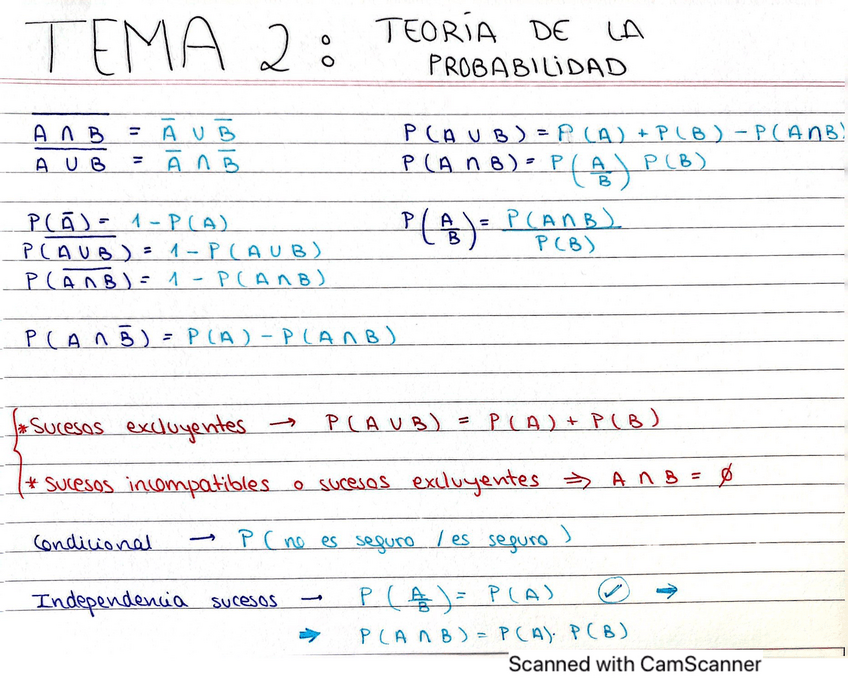 TEMA 2: TEORÍA DE LA PROBABILIDAD
A̅ ̅∩̅ ̅B̅ = A̅ ∪ B̅
A̅ ̅∪̅ ̅B̅ = A̅ ∩ B̅
P(A ∪ B) = P(A) + P(B) - P(A∩B)
P(A ∩ B) = P(A/B) P(B)
P(A̅) = 1 - P(A)
P(A̅ ̅∪̅ ̅B̅) = 1 - P(A ∪ B)
P(A̅ ̅∩̅ ̅B̅) = 1 - P(A ∩ B)
P(A/B) = P(A∩B) / P(B)
P(A ∩ B̅) = P(A) - P(A ∩ B)
* Sucesos excluyentes → P(A ∪ B) = P(A) + P(B)
* Sucesos incompatibles o sucesos excluyentes ⇒ A ∩ B = ∅
Condicional → P(no es seguro / es seguro)
Independencia sucesos → P(A/B) = P(A) ✓ ⇒
⇒ P(A ∩ B) = P(A)· P(B)
Scanned with CamScanner